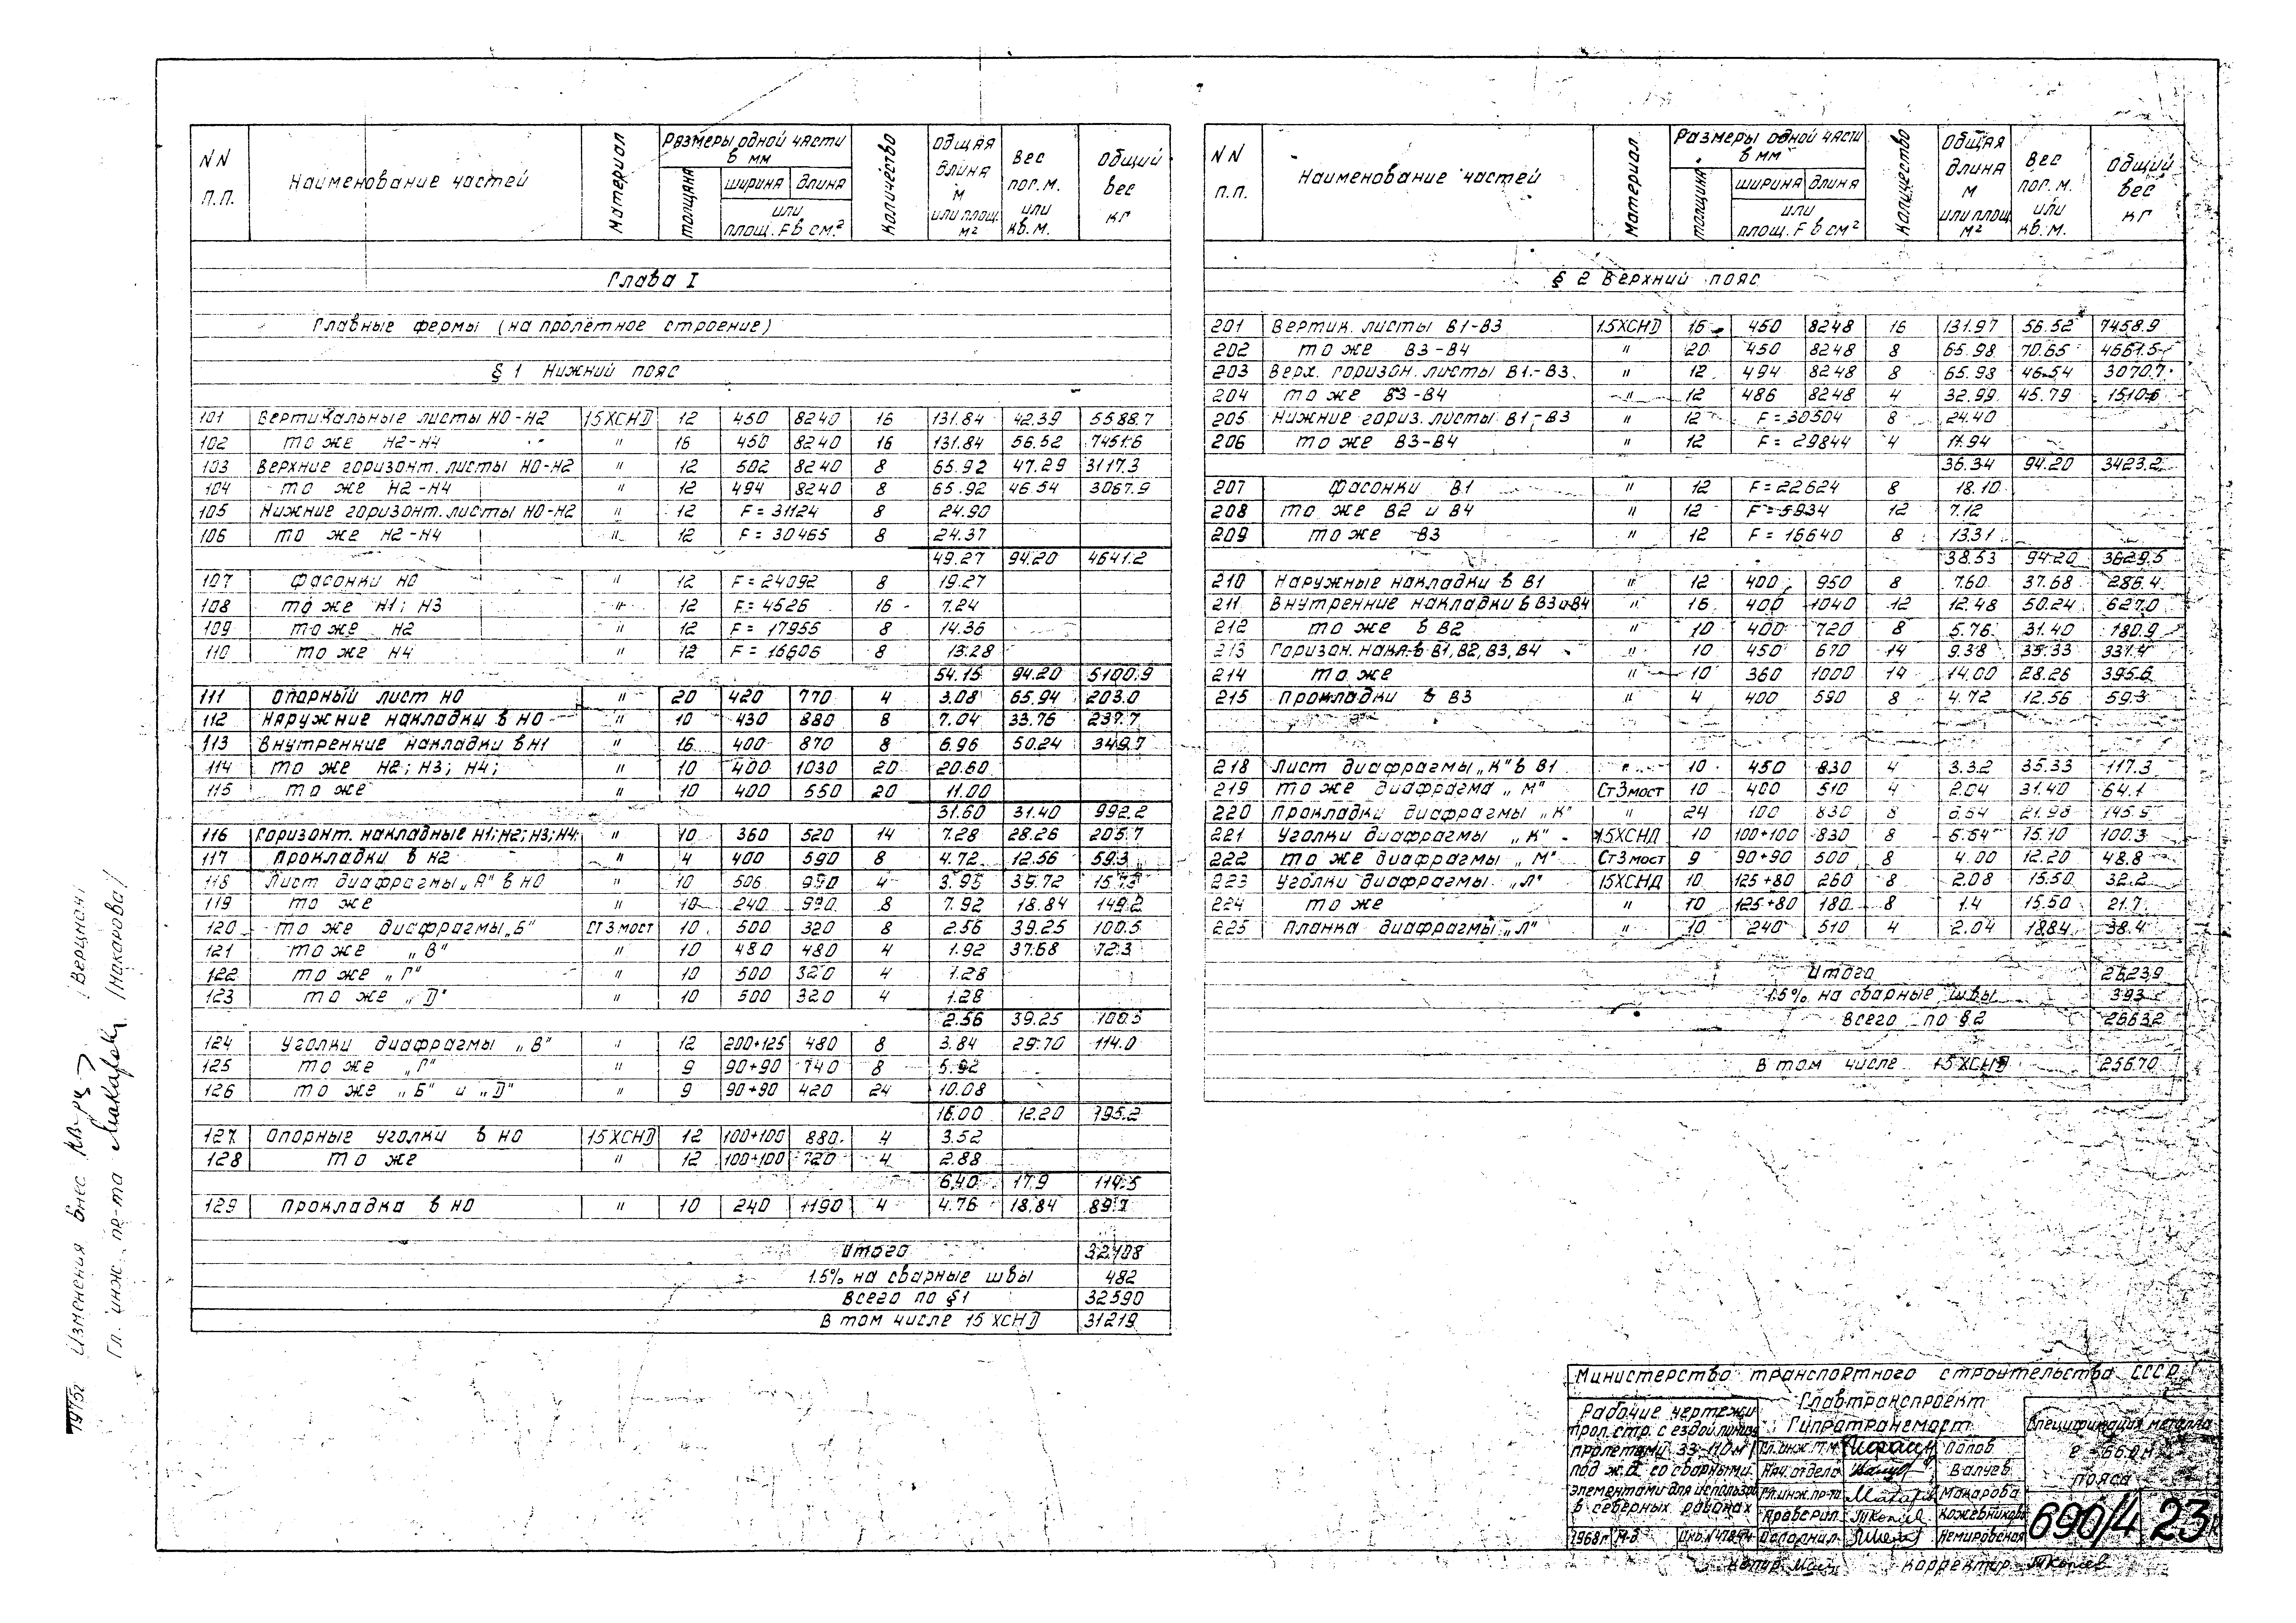 NN п.п. Наименование частей Материал Размеры одной части в мм толщина ширина длина или площ. F в см² Количество Общая длина м или площ. м² Вес пог. м. или кв. м. Общий вес кг
Глава I
Главные фермы (на пролётное строение)
§ 1 Нижний пояс
101 Вертикальные листы Н0-Н2 15ХСНД 12 450 8240 16 131.84 42.39 5588.7
102 то же Н2-Н4 " 16 450 8240 16 131.84 56.52 7451.6
103 Верхние горизонт. листы Н0-Н2 " 12 502 8240 8 65.92 47.29 3117.3
104 то же Н2-Н4 " 12 494 8240 8 65.92 46.54 3067.9
105 Нижние горизонт. листы Н0-Н2 " 12 F = 31124 8 24.90
106 то же Н2-Н4 " 12 F = 30465 8 24.37
49.27 94.20 4641.2
107 Фасонки Н0 " 12 F = 24092 8 19.27
108 то же Н1; Н3 " 12 F = 4526 16 7.24
109 то же Н2 " 12 F = 17955 8 14.36
110 то же Н4 " 12 F = 16606 8 13.28
54.15 94.20 5100.9
111 Опорный лист Н0 " 20 420 770 4 3.08 65.94 203.0
112 Наружние накладки в Н0 " 10 430 880 8 7.04 33.76 237.7
113 Внутренние накладки в Н1 " 16 400 870 8 6.96 50.24 349.7
114 то же Н2; Н3; Н4; " 10 400 1030 20 20.60
115 то же " 10 400 550 20 11.00
31.60 31.40 992.2
116 Горизонт. накладные Н1; Н2; Н3; Н4 " 10 360 520 14 7.28 28.26 205.7
117 Прокладки в Н2 " 4 400 590 8 4.72 12.56 59.3
118 Лист диафрагмы „А" в Н0 " 10 506 990 4 3.95 39.72
119 то же " 10 240 990 8 7.92 18.84 149.2
120 то же диафрагмы „Б" Ст 3 мост 10 500 320 8 2.56 39.25 100.5
121 то же „В" " 10 480 480 4 1.92 37.68 72.3
122 то же „Г" " 10 500 320 4 1.28
123 то же „D" " 10 500 320 4 1.28
2.56 39.25 100.5
124 Уголки диафрагмы „В" " 12 200+125 480 8 3.84 29.70 114.0
125 то же „Г" " 9 90+90 740 8 5.92
126 то же „Б" и „D" " 9 90+90 420 24 10.08
16.00 12.20 195.2
127 Опорные уголки в Н0 15ХСНД 12 100+100 880 4 3.52
128 то же " 12 100+100 720 4 2.88
6.40 17.9 114.5
129 Прокладка в Н0 " 10 240 1190 4 4.76 18.84 89.7
Итого 32108
1.5% на сварные швы 482
Всего по § 1 32590
В том числе 15 ХСНD 31219
NN п.п. Наименование частей Материал Размеры одной части в мм толщина ширина длина или площ. F в см² Количество Общая длина м или площ м² Вес пог. м. или кв. м. Общий вес кг
§ 2 Верхний пояс
201 Вертик. листы В1-В3 15ХСНD 16 450 8248 16 131.97 56.52 7458.9
202 то же В3-В4 " 20 450 8248 8 65.98 70.65 4661.5
203 Верх. горизон. листы В1-В3 " 12 494 8248 8 65.98 46.54 3070.7
204 то же В3-В4 " 12 486 8248 4 32.99 45.79 1510.6
205 Нижние гориз. листы В1-В3 " 12 F = 30504 8 24.40
206 то же В3-В4 " 12 F = 29844 4 11.94
36.34 94.20 3423.2
207 Фасонки В1 " 12 F = 22624 8 18.10
208 то же В2 и В4 " 12 F = 5934 12 7.12
209 то же В3 " 12 F = 16640 8 13.31
38.53 94.20 3629.5
210 Наружные накладки в В1 " 12 400 950 8 7.60 37.68 286.4
211 Внутренние накладки в В3 и В4 " 16 400 1040 12 12.48 50.24 627.0
212 то же в В2 " 10 400 720 8 5.76 31.40 180.9
213 Горизон. накл. в В1, В2, В3, В4 " 10 450 670 14 9.38 35.33 331.4
214 то же " 10 360 1000 14 14.00 28.26 395.6
215 Прокладки в В3 " 4 400 590 8 4.72 12.56 59.3
218 Лист диафрагмы „К" в В1 " 10 450 830 4 3.32 35.33 117.3
219 то же диафрагма „М" Ст3мост 10 400 510 4 2.04 31.40 64.1
220 Прокладки диафрагмы „К" " 24 100 830 8 6.64 21.98 145.9
221 Уголки диафрагмы „К" 15ХСНД 10 100+100 830 8 6.64 15.10 100.3
222 то же диафрагмы „М" Ст3мост 9 90+90 500 8 4.00 12.20 48.8
223 Уголки диафрагмы „Л" 15ХСНД 10 125+80 260 8 2.08 15.50 32.2
224 то же " 10 125+80 180 8 1.4 15.50 21.7
225 Планка диафрагмы „Л" " 10 240 510 4 2.04 18.84 38.4
Итого 26239
1.5% на сварные швы 393
Всего по § 2 26632
В том числе 15 ХСНD 25670
1975г Изменения внес /Верцман/
Гл. инж. пр-та /Макарова/
Министерство транспортного строительства СССР
Главтранспроект
Гипротрансмост
Рабочие чертежи
прол. стр. с ездой понизу
пролетами 33-110м
под ж.д. со сварными
элементами для использов.
в северных районах
Гл. инж. Г.Т.М. Попов
Нач. отдела Валуев
Гл. инж. пр-та Макарова
Проверил Кожевников
Исполнил Немировская
1968г М-б Инв. N 47894
Спецификация металла
ℓ = 66.0м
пояса
690/4 23
копир. корректир.